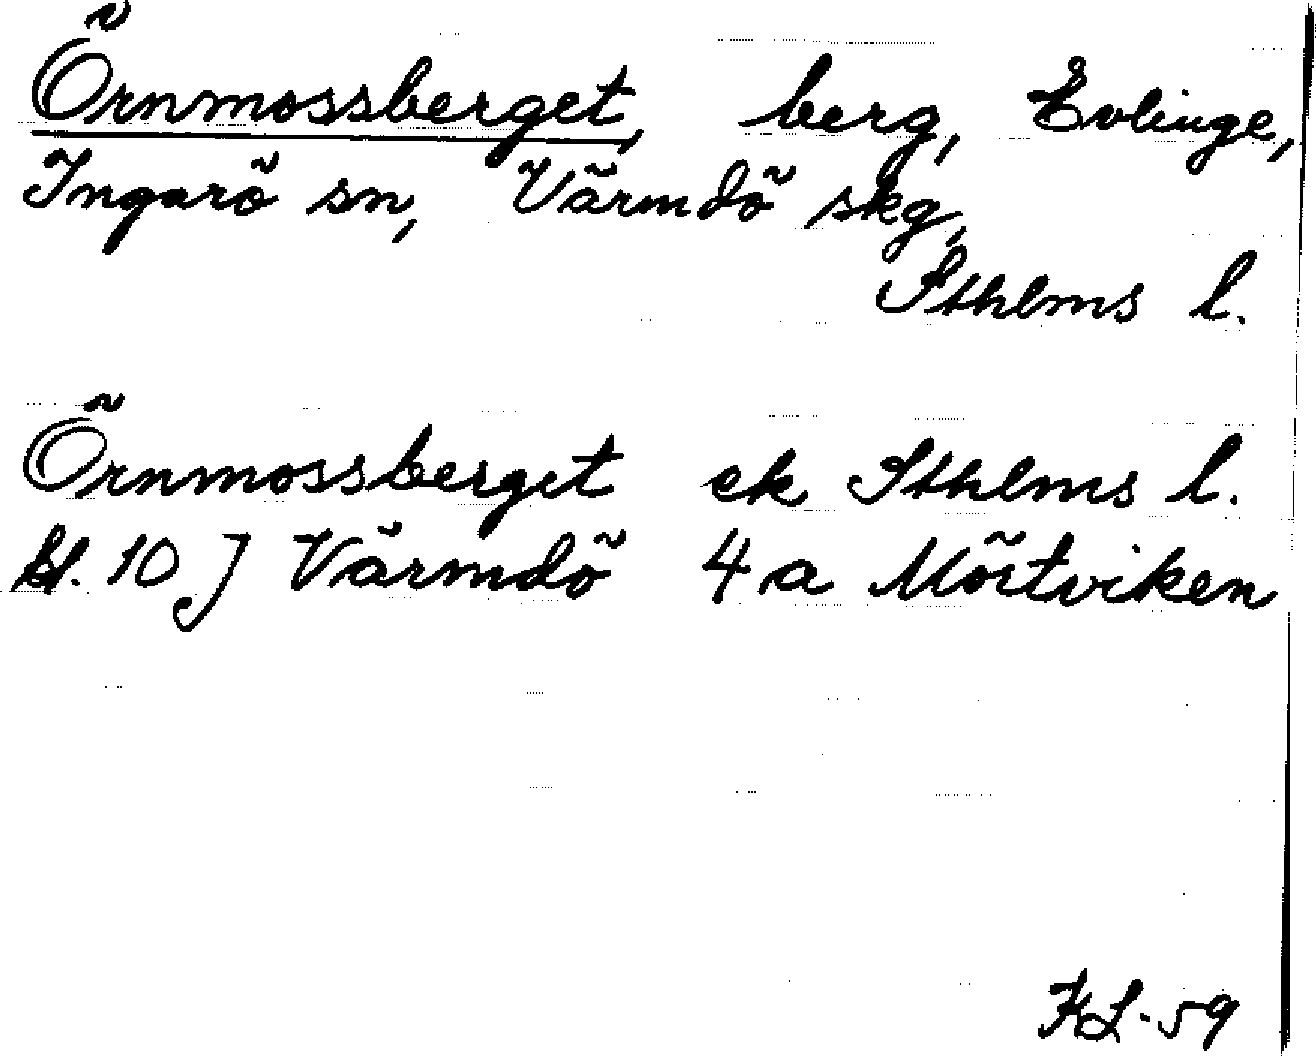 Örnmossberget, berg, Evlinge,
Ingarö sn, Värmdö skg,
Sthlms l.
Örnmossberget ek Sthlms l.
bl. 10 J Värmdö 4 a Mörtviken
KL-59